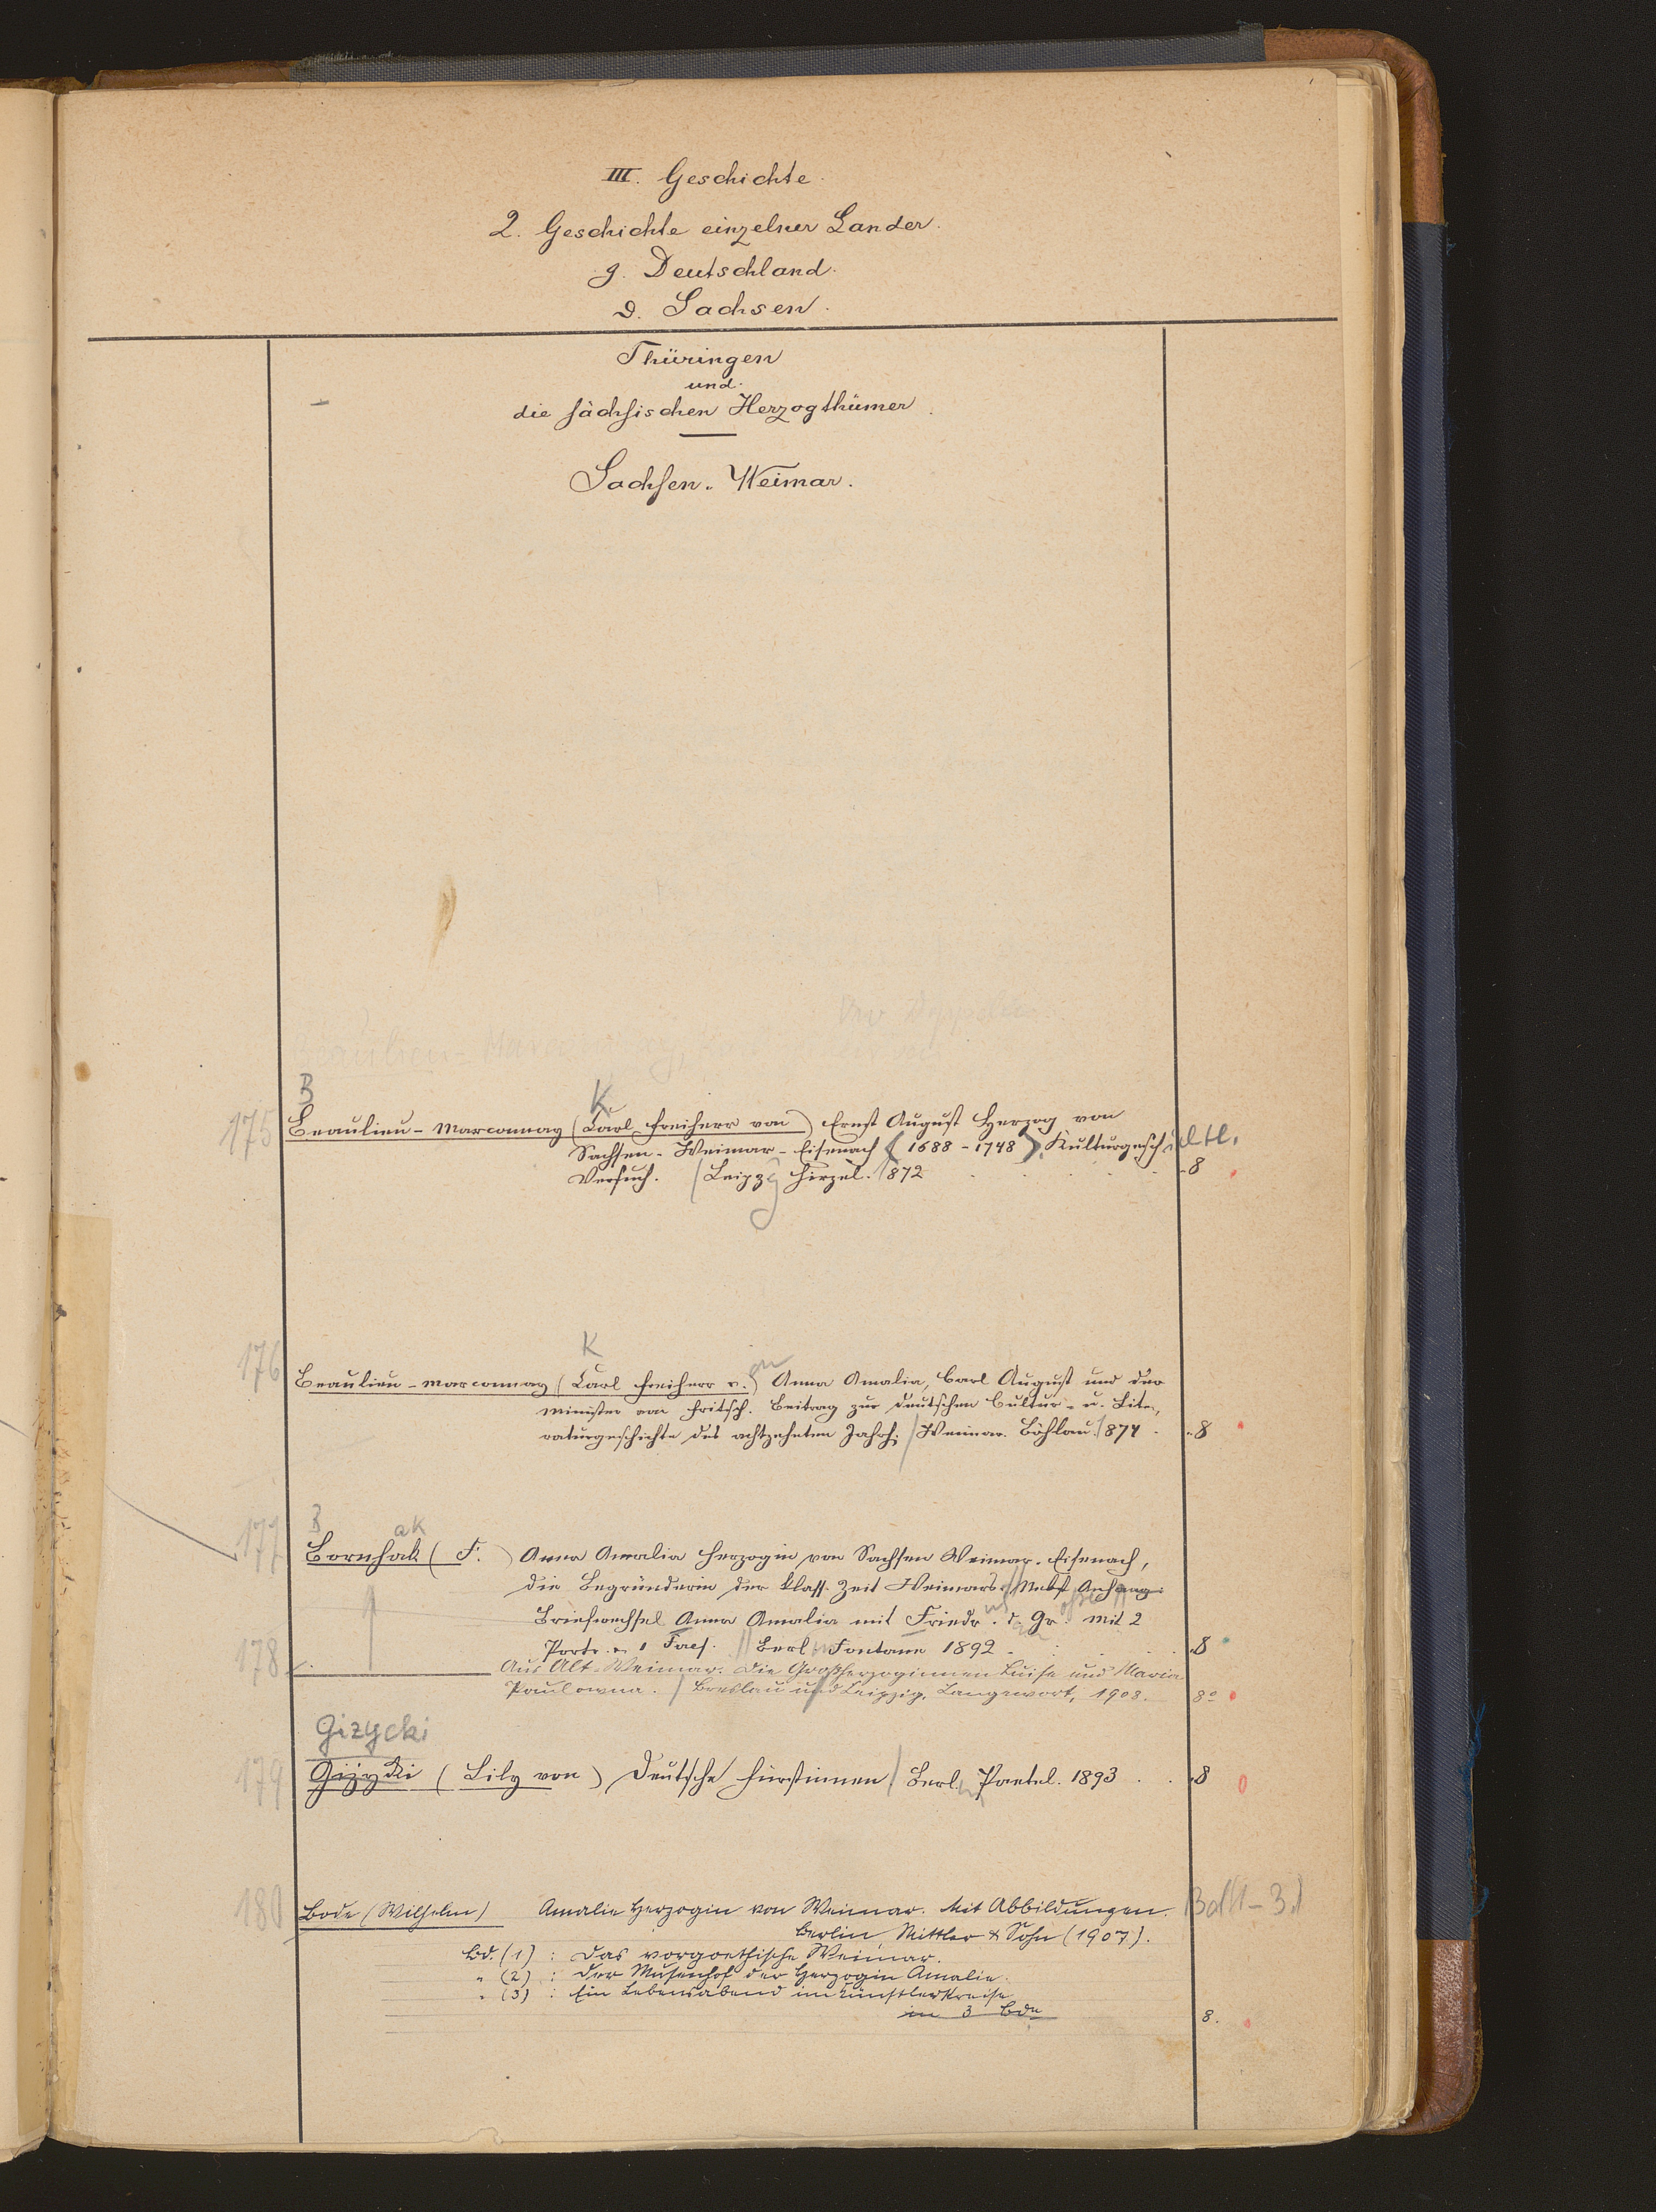 III. Geschichte.
2. Geschichte einzelner Länder.
g. Deutschland.
d. Sachsen.
Thüringen
und
die sächsischen Herzogthümer.
Sachsen-Weimar.
B K
175 Beaulieu-Marconnay (Carl Freiherr von) Ernst August Herzog von
Sachsen-Weimar-Eisenach (1688-1748). Kulturgesch
Versuch. / Leipzg Hirzel. 1872 8
K
176 Beaulieu-Marconnay (Carl Freiherr v.) Anna Amalia, Carl August und der
Minister von Fritsch. Beitrag zur deutschen Cultur- u. Lite-
raturgeschichte des achtzehnten Jahrh. / Weimar. Böhlau. 1874 8
B ak
177 Bornhak (F.) Anna Amalia Herzogin von Sachsen Weimar-Eisenach,
die Begründerin der klass. Zeit Weimars. // Nebst Anhang:
Briefwechsel Anna Amalia mit Friedr. d. Gr. Mit 2
Portr. u. 1 Facs. // Berl. Fontane 1892 8
178 Aus Alt-Weimar. Die Großherzoginnen Luise und Maria
Paulowna. / Breslau und Leipzig, Langewort, 1908. 8°
Gizycki
179 Gizycki (Lily von) Deutsche Fürstinnen / Berl. Paetel. 1893 8
180 Bode (Wilhelm) Amalie Herzogin von Weimar. Mit Abbildungen. Bd (1-3.)
Berlin, Mittler & Sohn (1907).
Bd. (1): Das vorgoethische Weimar.
" (2): Der Musenhof der Herzogin Amalie.
" (3): Ein Lebensabend im Künstlerkreise
in 3 Bde 8.